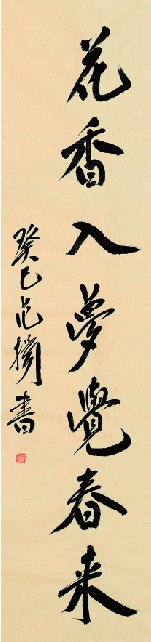 花香入夢覺春来
癸巳范衡書